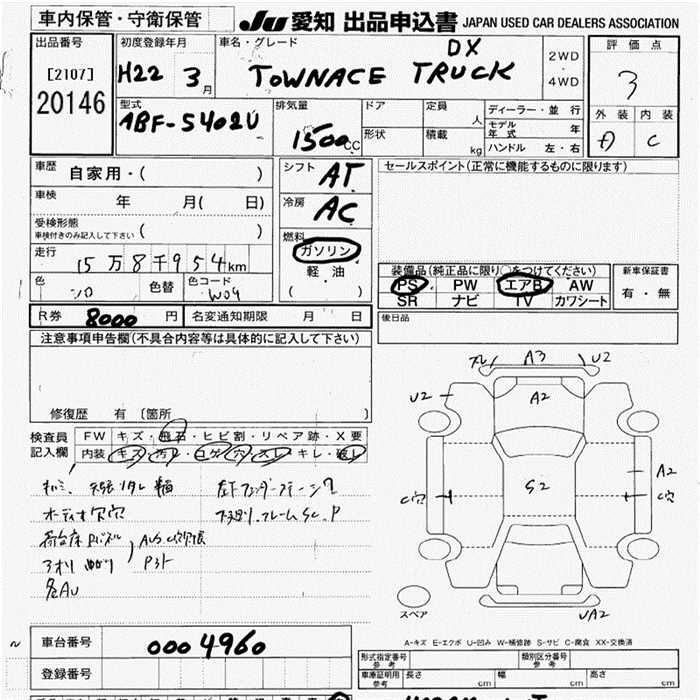 車内保管・守衛保管
JU 愛知 出品申込書 JAPAN USED CAR DEALERS ASSOCIATION
出品番号
[2107]
20146
初度登録年月
H22 3月
車名・グレード
DX
TOWNACE TRUCK
2WD
・
4WD
評価点
3
外装 内装
A C
型式
ABF-S402U
排気量
1500cc
ドア
定員 人
形状
積載 kg
ディーラー・並行
モデル年式 年
ハンドル 左・右
車歴 自家用・( )
車検 年 月( 日)
受検形態
車検付きのみ記入して下さい ( )
走行 15万8千954km
色 シロ 色替 色コード W09
シフト AT
冷房 AC
燃料
ガソリン
軽油
( )
セールスポイント(正常に機能するものに限ります)
装備品(純正品に限り○をつけてください)
PS PW エアB AW
SR ナビ TV カワシート
新車保証書
有・無
R券 8000 円 名変通知期限 月 日
後日品
注意事項申告欄(不具合内容等は具体的に記入して下さい)
修復歴 有 〔箇所 〕
検査員記入欄
FW キズ・飛石・ヒビ割・リペア跡・X要
内装 キズ・汚レ・コゲ・穴・スレ・キレ・破レ
オーディオ欠穴
下廻り.フレームSC.P
各AU
A3 U2
U2 A2
A2
C穴 S2 C穴
スペア
UA2
A-キズ E-エクボ U-凹み W-補修跡 S-サビ C-腐食 XX-交換済
車台番号 0004960
登録番号
形式指定番号 参考
類別区分番号 参考
車庫証明用 参考 長さ cm 幅 cm 高さ cm